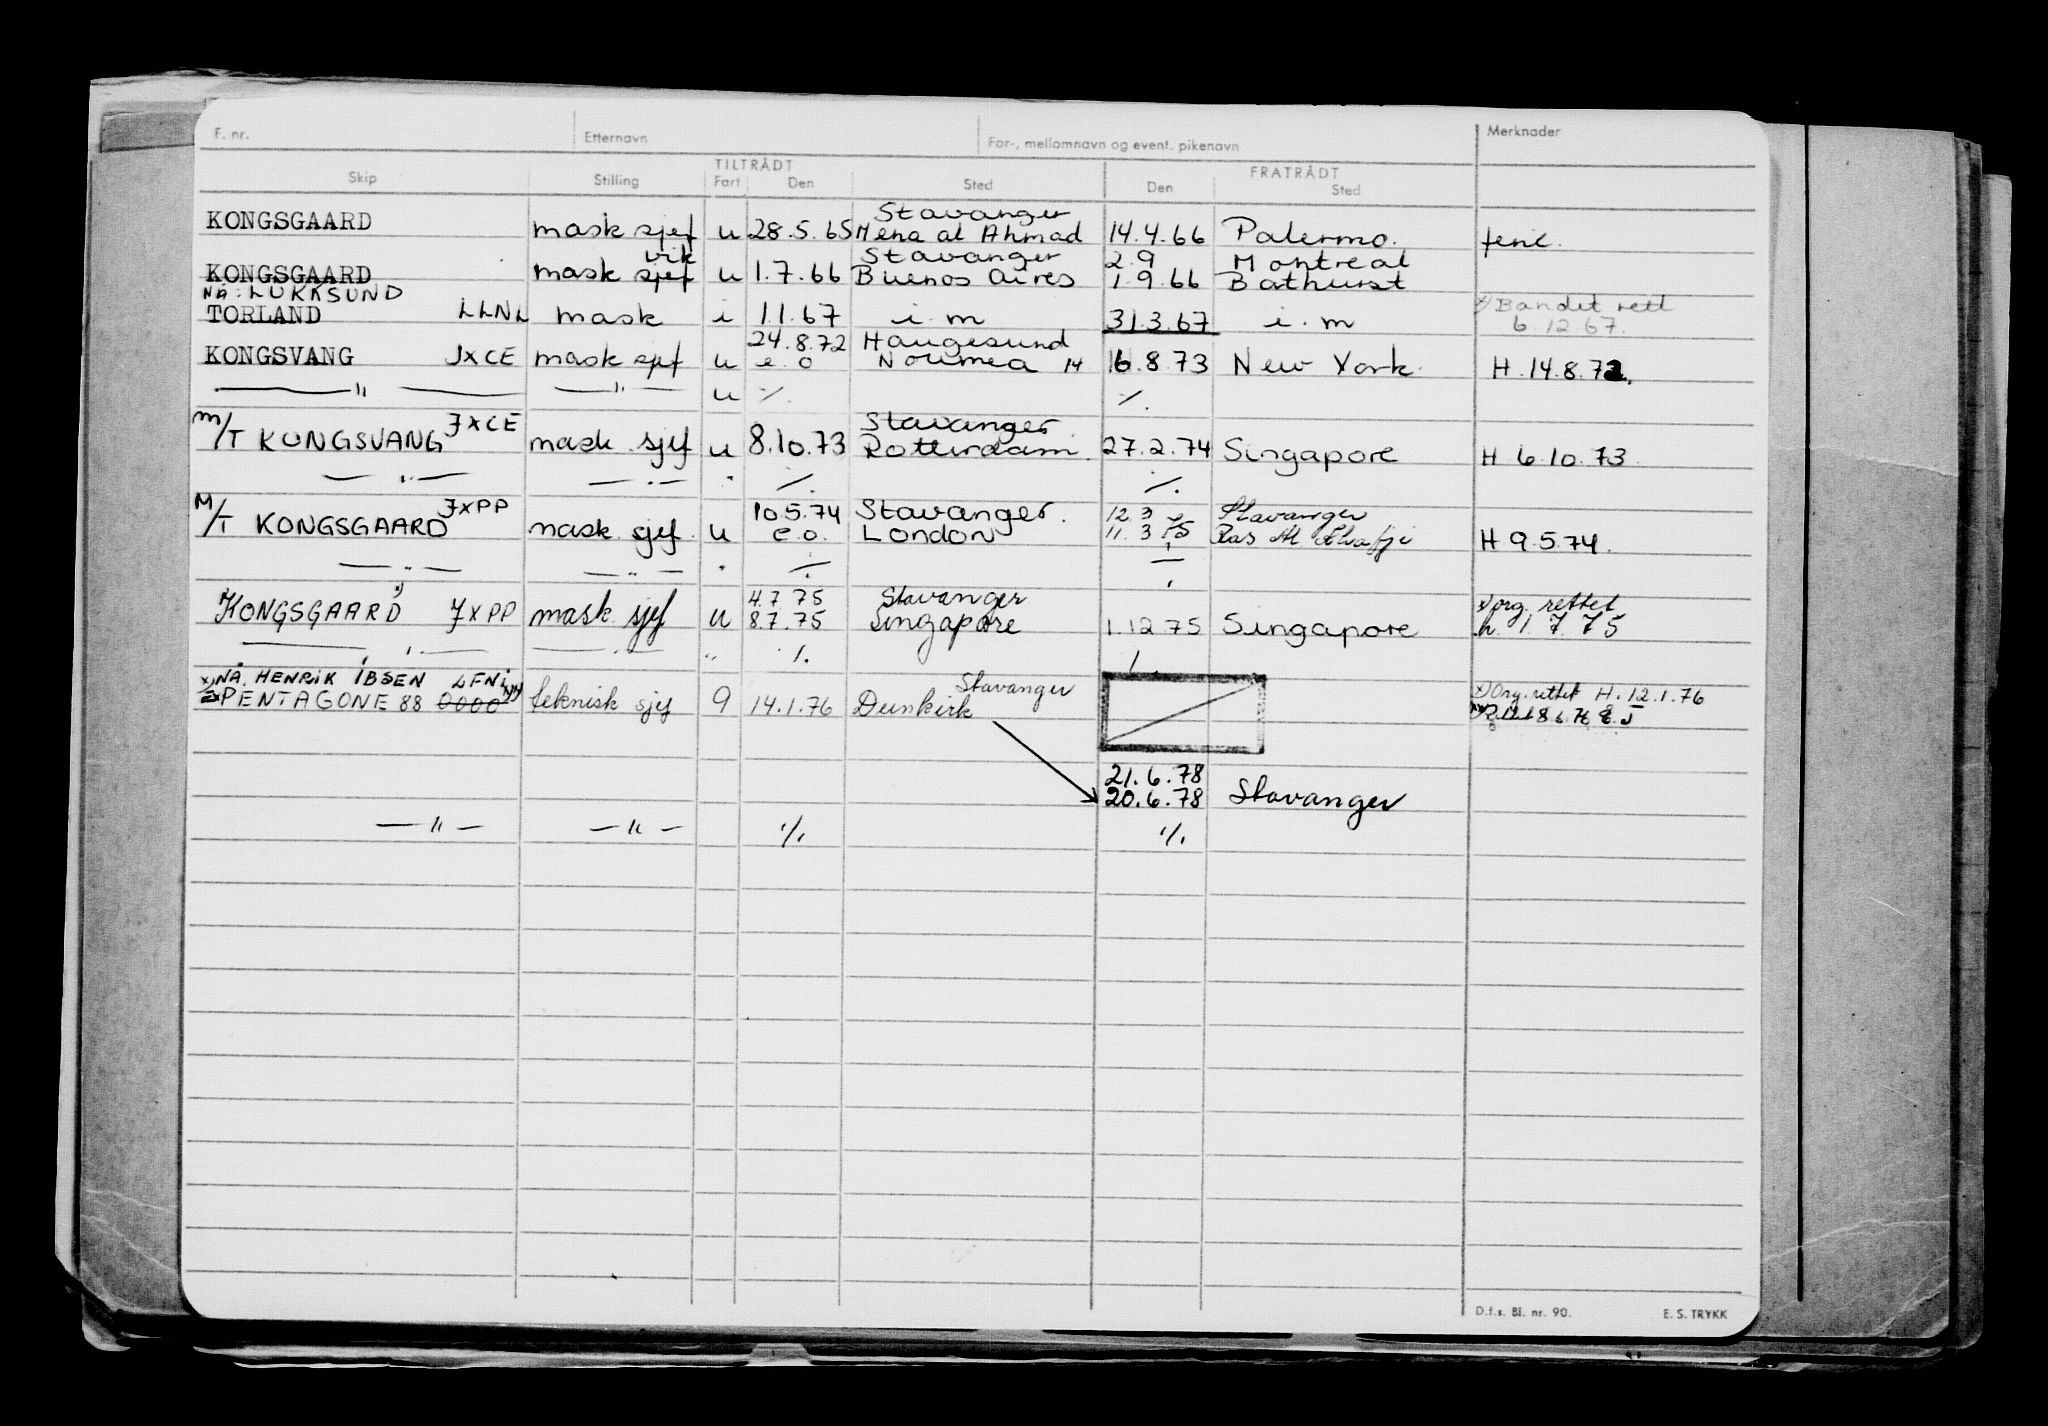 F. nr. Etternavn For-, mellomnavn og event. pikenavn Merknader
TILTRÅDT FRATRÅDT
Skip Stilling Fart Den Sted Den Sted
Stavanger
KONGSGAARD mask sjef u 28.5.65 Mena al Ahmad 14.4.66 Palermo. ferie.
vik Stavanger 2.9 Montreal
KONGSGAARD mask sjef u 1.7.66 Buenos Aires 1.9.66 Bathurst
NÅ: LOKKSUND x) Bandet rett
TORLAND LLNL mask i 1.1.67 i.m 31.3.67 i.m 6.12.67.
24.8.72 Haugesund
KONGSVANG JXCE mask sjef u e o Noumea 14 16.8.73 New York. H. 14.8.72.
— " — — " — u %. %.
JXCE Stavanger
M/T KONGSVANG mask. sjef u 8.10.73 Rotterdam. 27.2.74 Singapore H 6.10.73.
— " — — " — " %. %.
JXPP 10.5.74 Stavanger. 12.3 Stavanger
M/T KONGSGAARD mask. sjef. u e.o. London 11.3 75 Ras Al Khafji H 9.5.74.
— " — — " — " %
4.7.75 Stavanger x) org. rettet
KONGSGAARD JXPP mask. sjef u 8.7.75 Singapore 1.12.75 Singapore h. 1.7.75
— " — — " — " %.
x) NÅ. HENRIK IBSEN LFNI Stavanger x) Org. rettet H. 12.1.76
PENTAGONE 88 0000 teknisk sjef 9 14.1.76 Dunkirk
21.6.78
20.6.78 Stavanger
— " — — " — %. %.
D.f.s. Bl. nr. 90. E. S. TRYKK